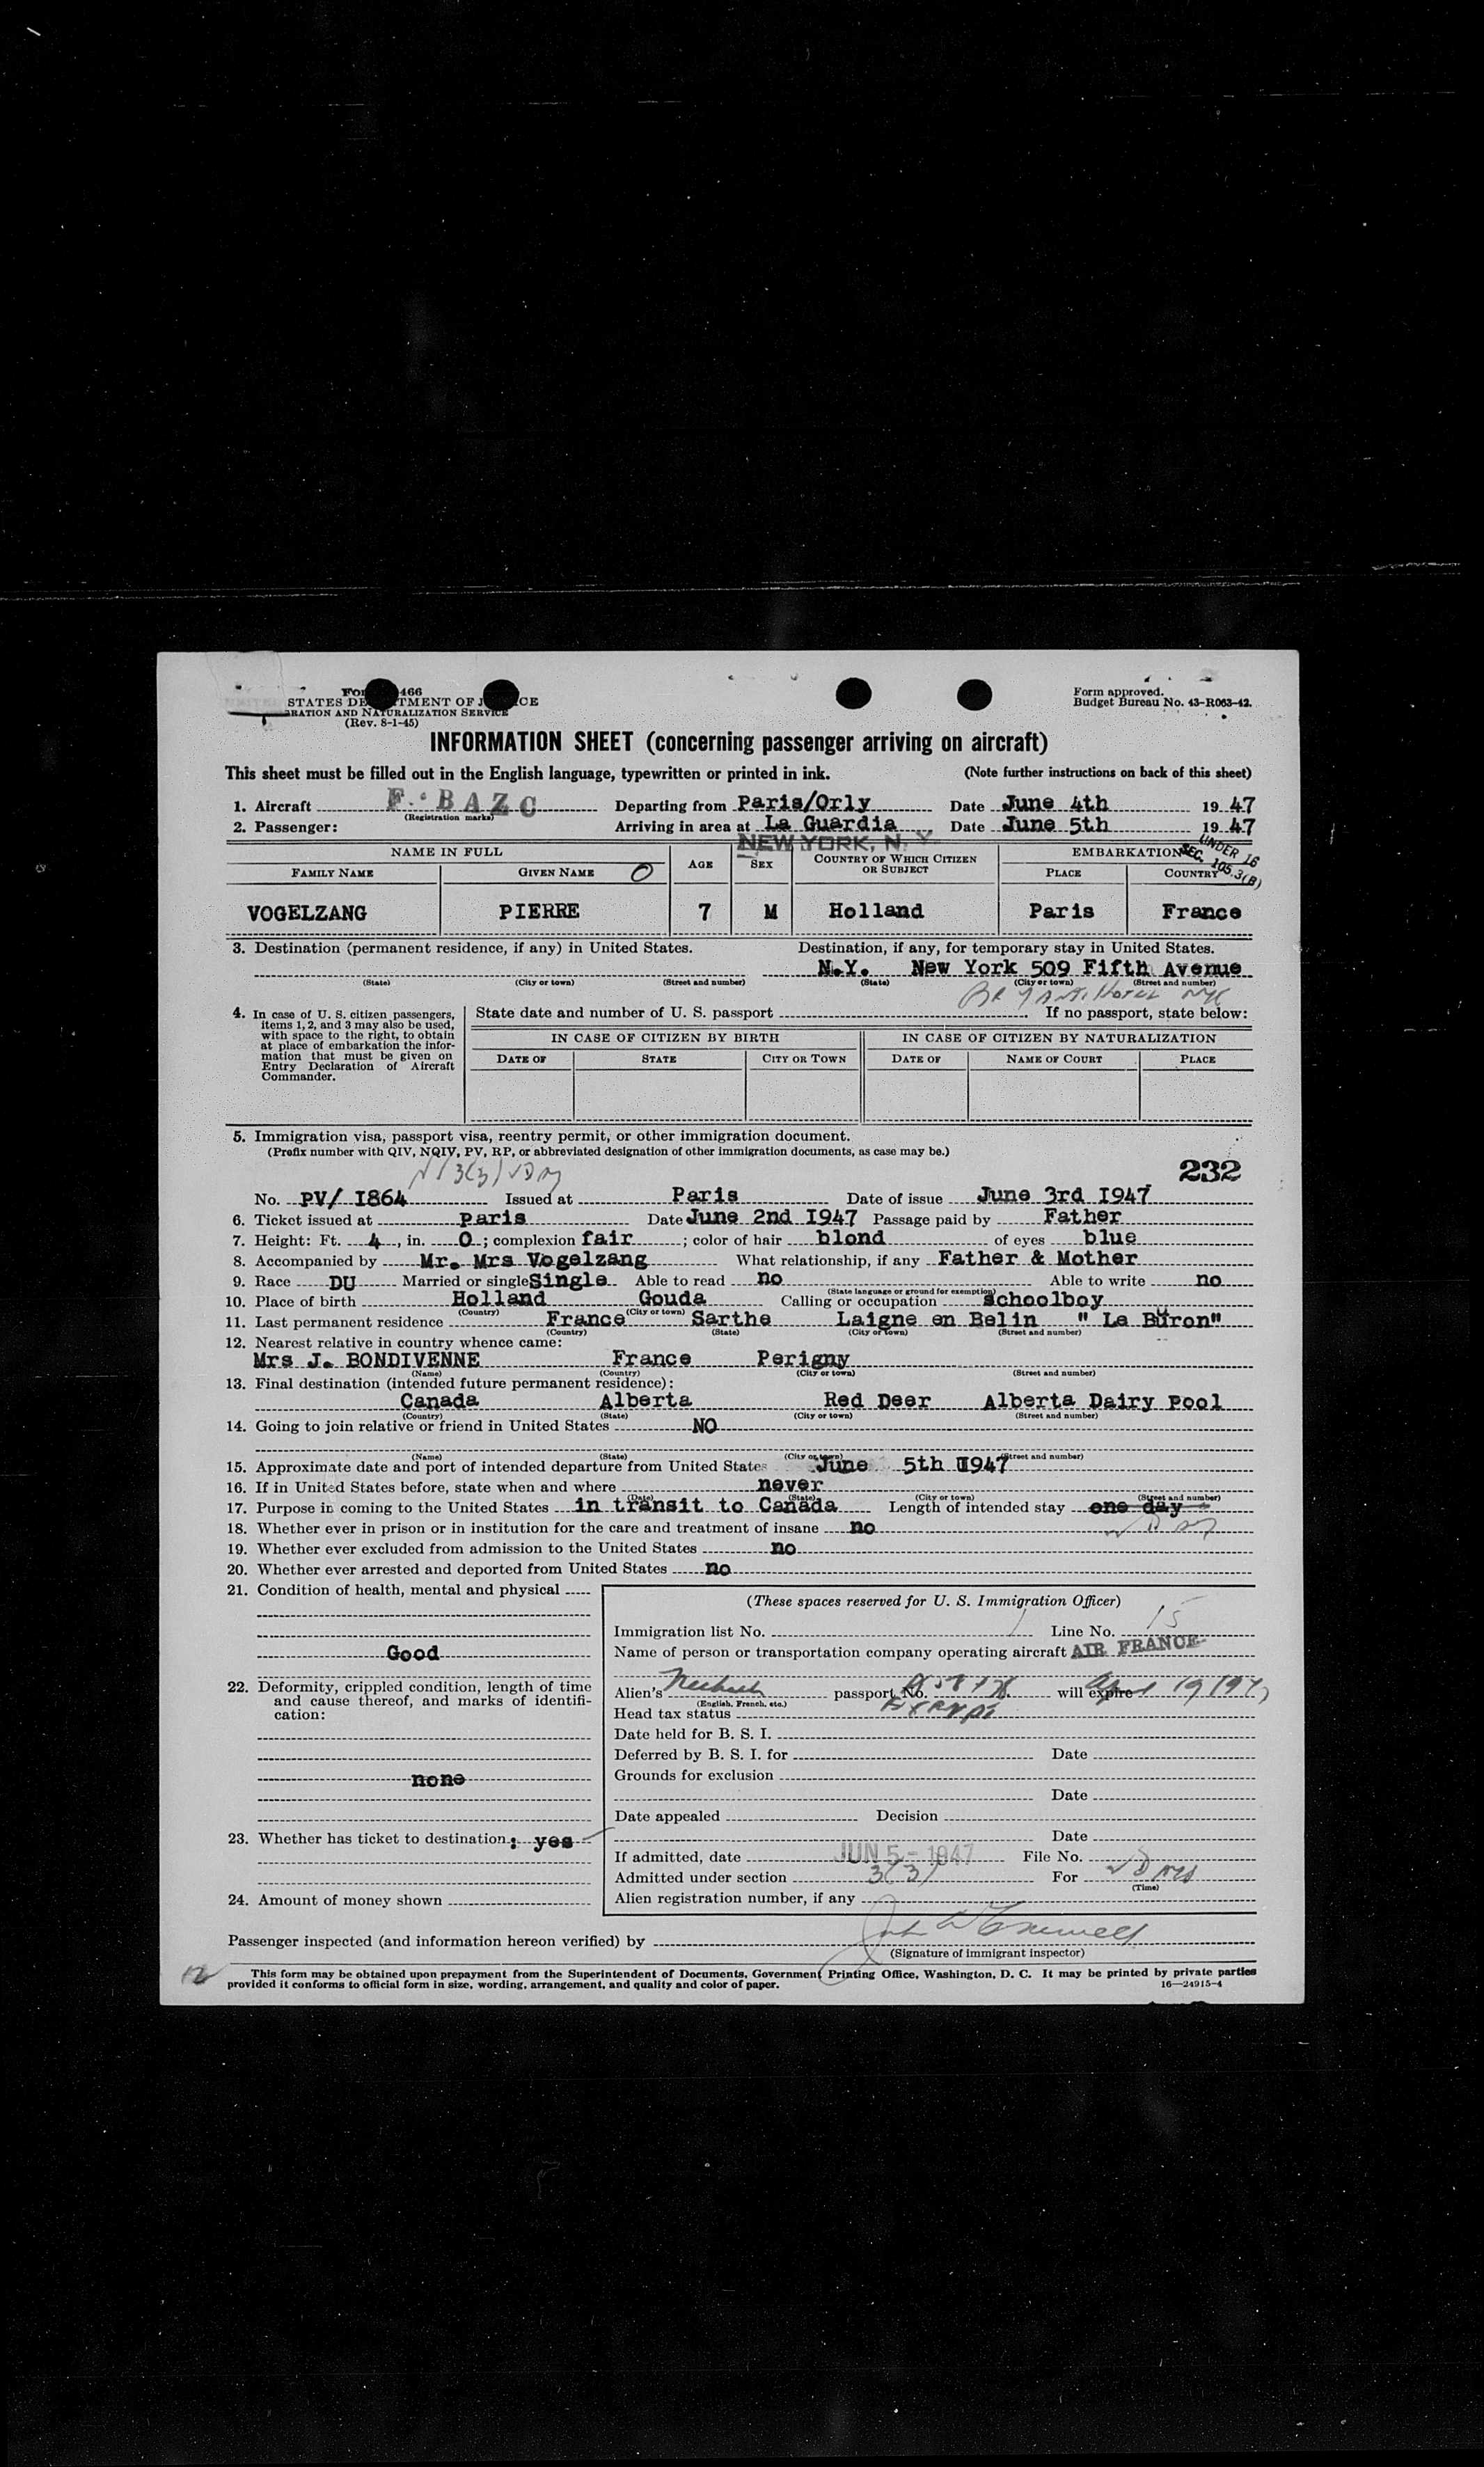 Form 466
STATES DEPARTMENT OF JUSTICE
IMMIGRATION AND NATURALIZATION SERVICE
(Rev. 8-1-45)
Form approved.
Budget Bureau No. 43-R063-42.
INFORMATION SHEET (concerning passenger arriving on aircraft)
This sheet must be filled out in the English language, typewritten or printed in ink. (Note further instructions on back of this sheet)
1. Aircraft F. BAZC Departing from Paris/Orly Date June 4th 19 47
(Registration marks)
2. Passenger: Arriving in area at La Guardia Date June 5th 19 47
NEW YORK, N. Y.
UNDER 16
SEC. 105.3(B)
NAME IN FULL AGE SEX COUNTRY OF WHICH CITIZEN OR SUBJECT EMBARKATION
FAMILY NAME GIVEN NAME PLACE COUNTRY
VOGELZANG PIERRE 7 M Holland Paris France
3. Destination (permanent residence, if any) in United States. Destination, if any, for temporary stay in United States.
N.Y. New York 509 Fifth Avenue
(State) (City or town) (Street and number) (State) (City or town) (Street and number)
Hotel NYC
4. In case of U. S. citizen passengers, items 1, 2, and 3 may also be used, with space to the right, to obtain at place of embarkation the information that must be given on Entry Declaration of Aircraft Commander.
State date and number of U. S. passport If no passport, state below:
IN CASE OF CITIZEN BY BIRTH IN CASE OF CITIZEN BY NATURALIZATION
DATE OF STATE CITY OR TOWN DATE OF NAME OF COURT PLACE
5. Immigration visa, passport visa, reentry permit, or other immigration document.
(Prefix number with QIV, NQIV, PV, RP, or abbreviated designation of other immigration documents, as case may be.)
232
3(3)
No. PV/ I864 Issued at Paris Date of issue June 3rd I947
6. Ticket issued at Paris Date June 2nd I947 Passage paid by Father
7. Height: Ft. 4, in. 0; complexion fair; color of hair blond of eyes blue
8. Accompanied by Mr. Mrs Vogelzang What relationship, if any Father & Mother
9. Race DU Married or single Single Able to read no Able to write no
(State language or ground for exemption)
10. Place of birth Holland Gouda Calling or occupation schoolboy
(Country) (City or town)
11. Last permanent residence France Sarthe Laigne en Belin " Le Buron"
(Country) (State) (City or town) (Street and number)
12. Nearest relative in country whence came:
Mrs J. BONDIVENNE France Perigny
(Name) (Country) (City or town) (Street and number)
13. Final destination (intended future permanent residence):
Canada Alberta Red Deer Alberta Dairy Pool
(Country) (State) (City or town) (Street and number)
14. Going to join relative or friend in United States NO
(Name) (State) (City or town) (Street and number)
15. Approximate date and port of intended departure from United States June 5th I947
16. If in United States before, state when and where never
(Date) (State) (City or town) (Street and number)
17. Purpose in coming to the United States in transit to Canada Length of intended stay one day
18. Whether ever in prison or in institution for the care and treatment of insane no
19. Whether ever excluded from admission to the United States no
20. Whether ever arrested and deported from United States no
21. Condition of health, mental and physical
Good
22. Deformity, crippled condition, length of time and cause thereof, and marks of identification:
none
23. Whether has ticket to destination: yes
24. Amount of money shown
(These spaces reserved for U. S. Immigration Officer)
Immigration list No. 1 Line No. 15
Name of person or transportation company operating aircraft AIR FRANCE
Alien's passport No. will expire
(English, French, etc.)
Head tax status Exempt
Date held for B. S. I.
Deferred by B. S. I. for Date
Grounds for exclusion
Date
Date appealed Decision
Date
If admitted, date JUN 5 - 1947 File No.
Admitted under section 3(3) For
(Time)
Alien registration number, if any
Passenger inspected (and information hereon verified) by
(Signature of immigrant inspector)
This form may be obtained upon prepayment from the Superintendent of Documents, Government Printing Office, Washington, D. C. It may be printed by private parties
provided it conforms to official form in size, wording, arrangement, and quality and color of paper. 16—24915-4